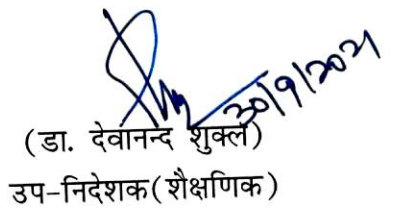 30/9/2021
(डा. देवानन्द शुक्ल)
उप-निदेशक(शैक्षणिक)